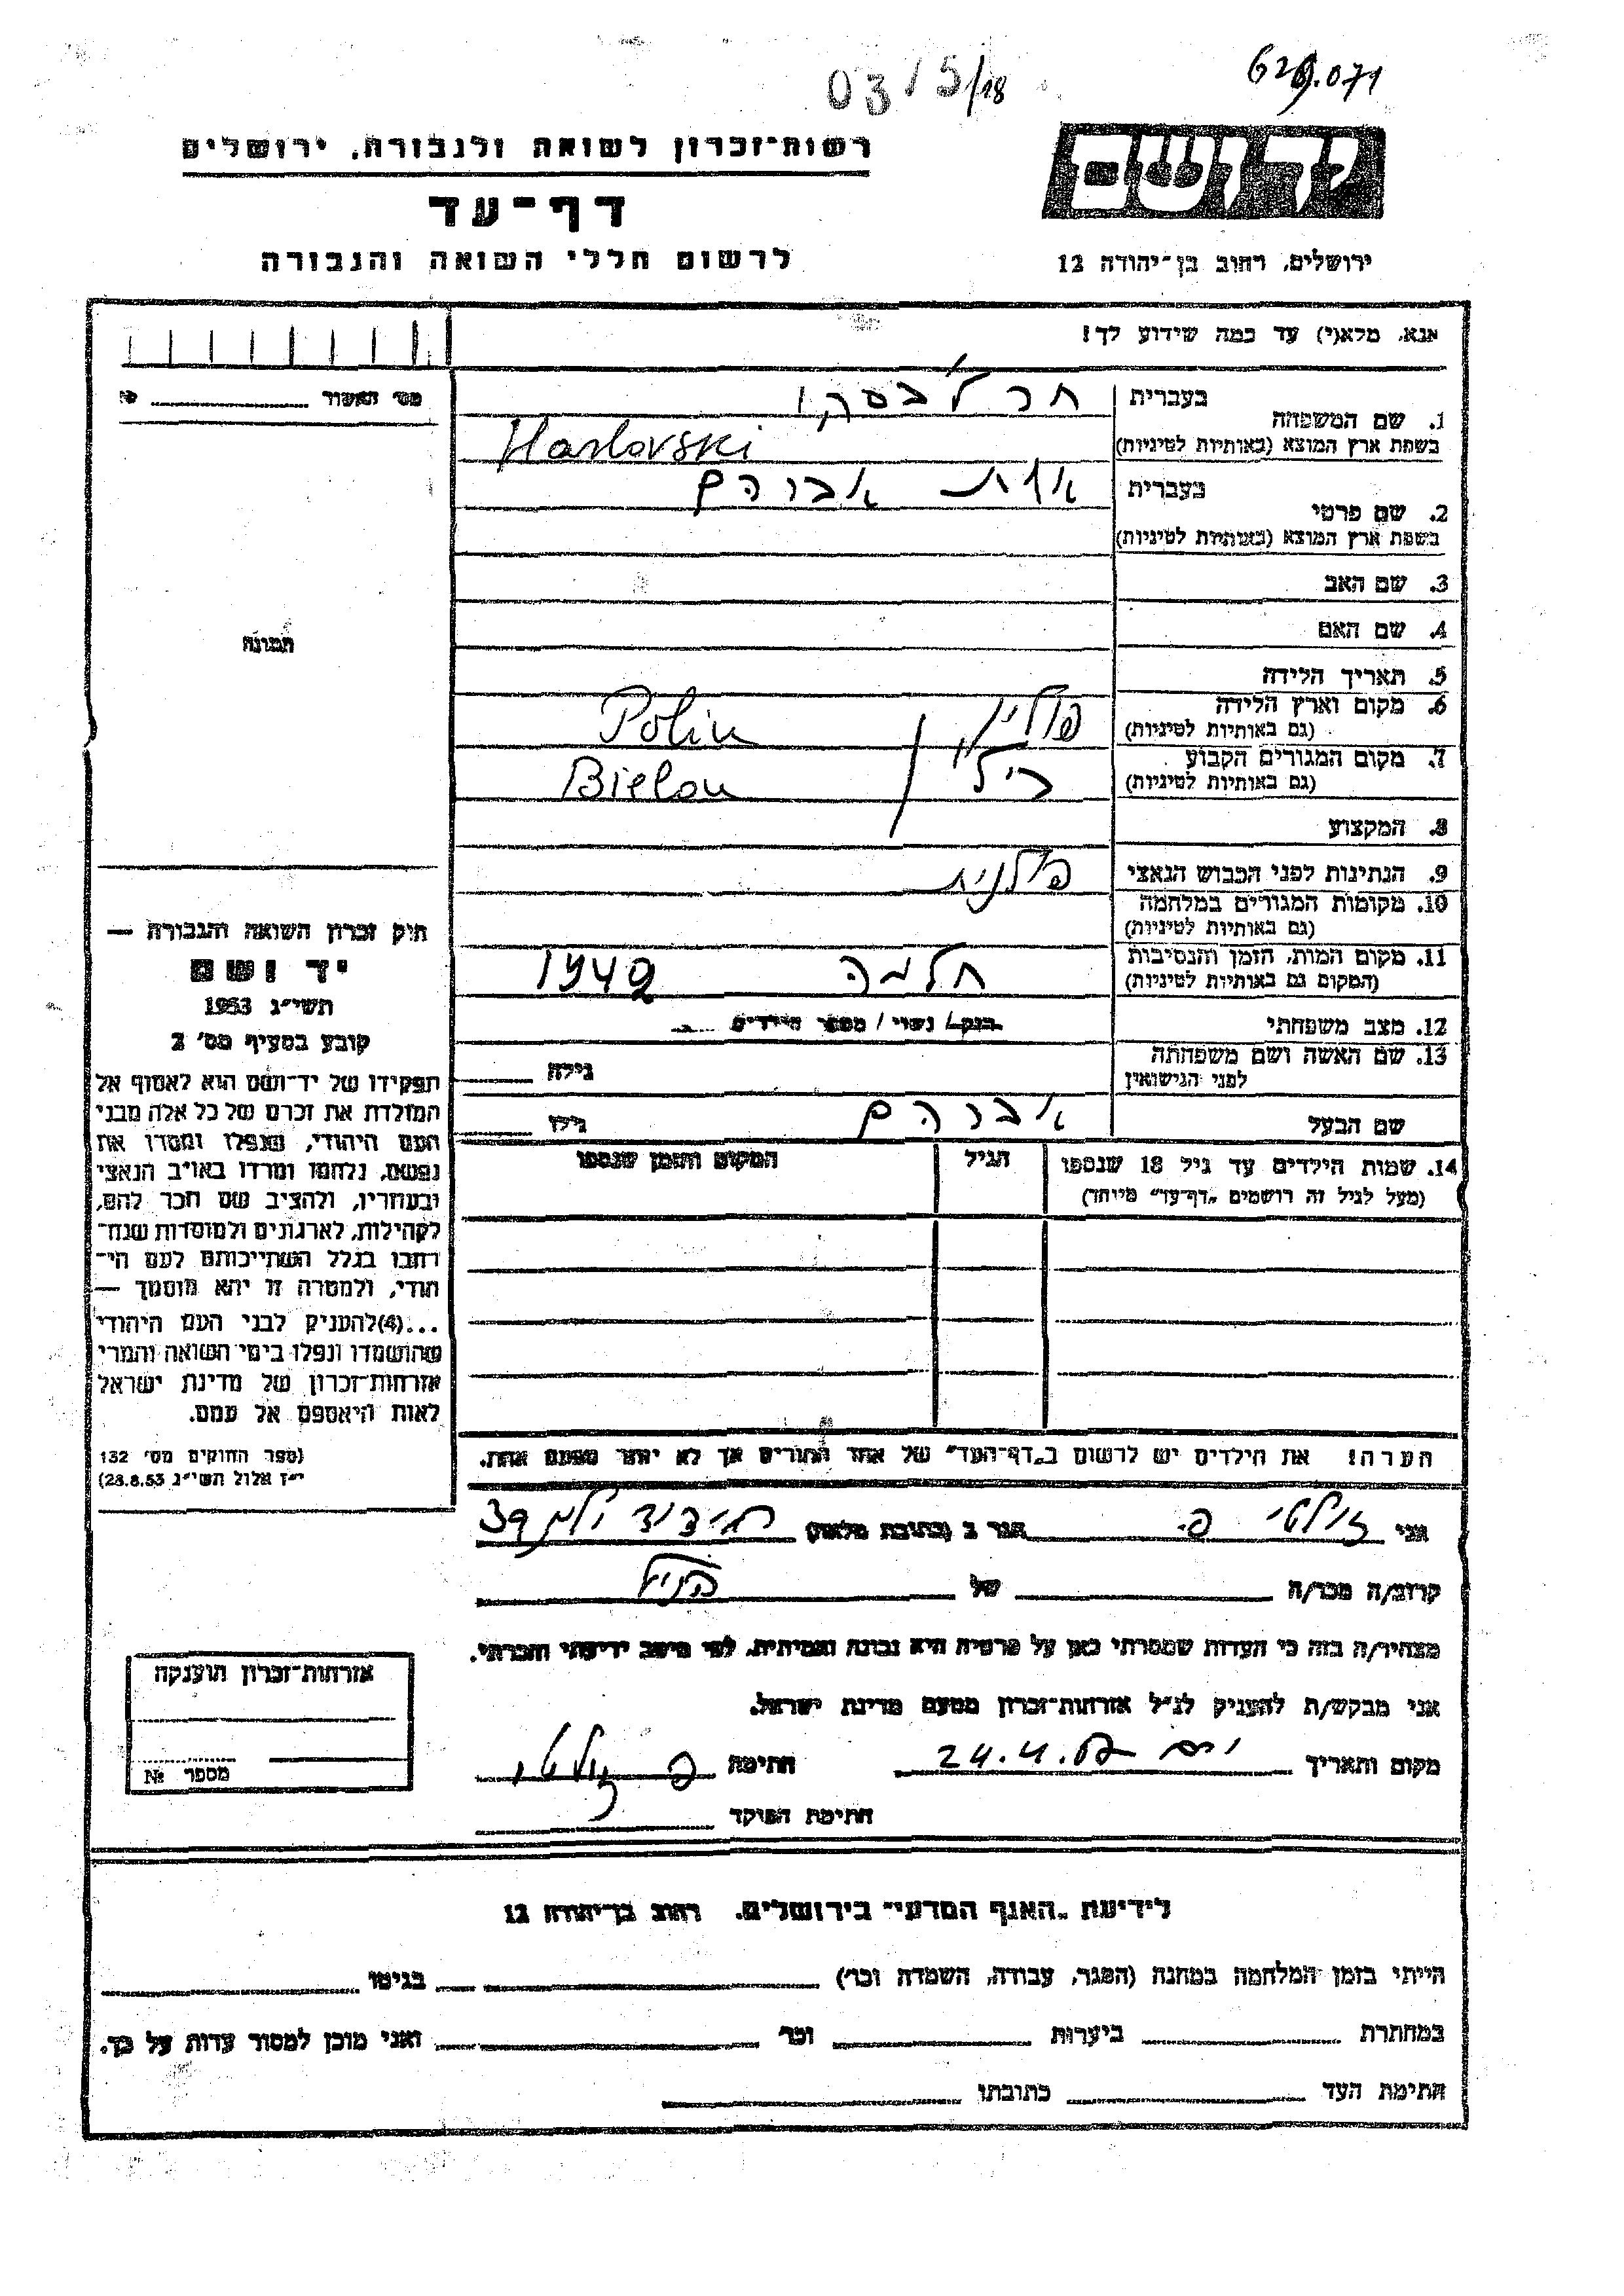 03/5/18
629.071
רשות־זכרון לשואה ולגבורה, ירושלים
יד ושם
דף־עד
לרשום חללי השואה והגבורה
ירושלים, רחוב בן־יהודה 12
אנא, מלא(י) עד כמה שידוע לך!
מס׳ האשור
1. שם המשפחה
בעברית
Harlovski
בשפת ארץ המוצא (באותיות לטיניות)
2. שם פרטי
בעברית אשת אברהם
בשפת ארץ המוצא (באותיות לטיניות)
3. שם האב
4. שם האם
תמונה
5. תאריך הלידה
6. מקום וארץ הלידה
(גם באותיות לטיניות)
פולין Polin
7. מקום המגורים הקבוע
(גם באותיות לטיניות)
Bielou
8. המקצוע
9. הנתינות לפני הכבוש הנאצי פולנית
10. מקומות המגורים במלחמה
(גם באותיות לטיניות)
11. מקום המות, הזמן והנסיבות
(המקום גם באותיות לטיניות)
חלמה 1942
12. מצב משפחתי רווק/ נשוי / מספר הילדים
13. שם האשה ושם משפחתה
לפני הנישואין
גילה
שם הבעל אברהם גילו
14. שמות הילדים עד גיל 18 שנספו
(מעל לגיל זה רושמים „דף־עד״ מיוחד)
הגיל
המקום והזמן שנספו
הערה! את הילדים יש לרשום ב„דף־העד״ של אחד ההורים אך לא יותר מפעם אחת.
חוק זכרון השואה והגבורה —
יד ושם
תשי״ג 1953
קובע בסעיף מס׳ 2
תפקידו של יד־ושם הוא לאסוף אל
המולדת את זכרם של כל אלה מבני
העם היהודי, שנפלו ומסרו את
נפשם, נלחמו ומרדו באויב הנאצי
ובעוזריו, ולהציב שם וזכר להם,
לקהילות, לארגונים ולמוסדות שנח־
רבו בגלל השתייכותם לעם הי־
הודי, ולמטרה זו יהא מוסמך —
...(4)להעניק לבני העם היהודי
שהושמדו ונפלו בימי השואה והמרי
אזרחות־זכרון של מדינת ישראל
לאות היאספם אל עמם.
(ספר החוקים מס׳ 132
י״ז אלול תשי״ג 28.8.53)
אני זילטי פ. הגר ב (כתובת מלאה)
קרוב/ה מכר/ה של
מצהיר/ה בזה כי העדות שמסרתי כאן על פרטיה היא נכונה ואמיתית, לפי מיטב ידיעתי והכרתי.
אני מבקש/ת להעניק לנ״ל אזרחות־זכרון מטעם מדינת ישראל.
מקום ותאריך 24.4. חתימה פ זילטי
חתימת הפוקד
אזרחות־זכרון הוענקה
מספר №
לידיעת „האגף המדעי״ בירושלים, רחוב בן־יהודה 12
הייתי בזמן המלחמה במחנה (הסגר, עבודה, השמדה וכו׳) בגיטו
במחתרת ביערות וכו׳ ואני מוכן למסור עדות על כך.
חתימת העד כתובתו